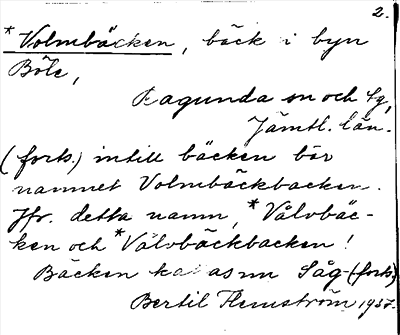 2.
*Volmbäcken, bäck i byn
Böle,
Ragunda sn och tg,
Jämtl. län.
(forts.) intill bäcken bär
namnet Volmbäckbacken.
Jfr. detta namn, *Välvbäc-
ken och *Välvbäckbacken!
Bäcken kallas nu Såg-(forts.)
Bertil Flemström 1937.